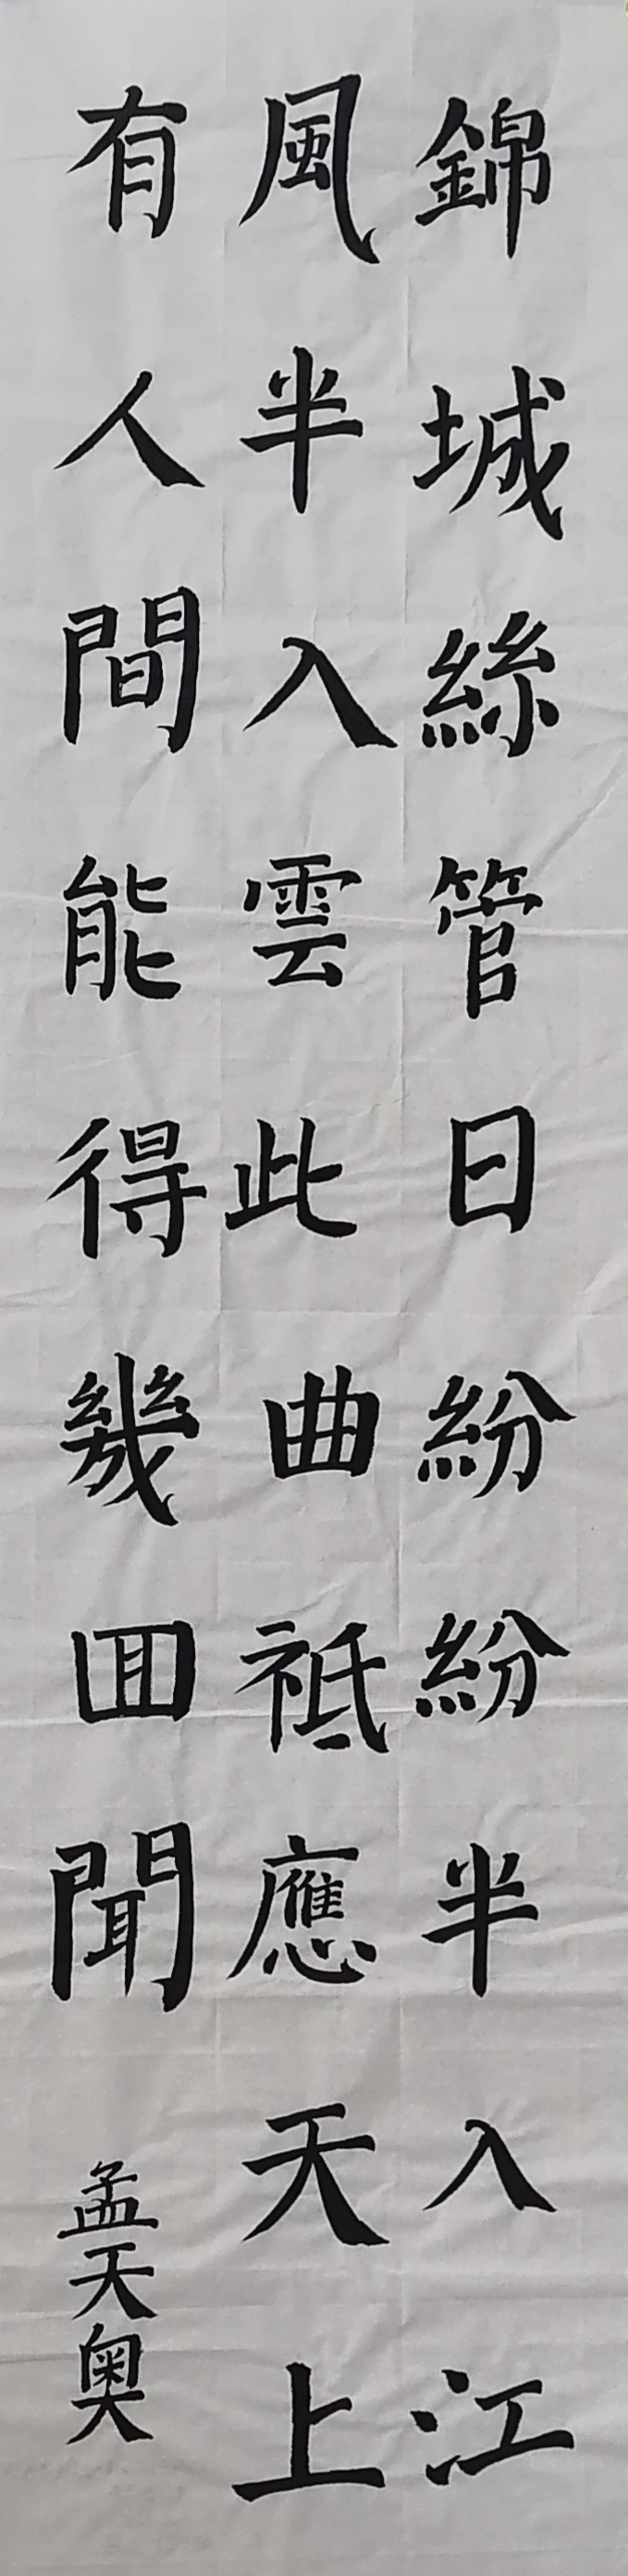 錦城絲管日紛紛半入江
風半入雲此曲祗應天上
有人間能得幾囬聞
孟天奥